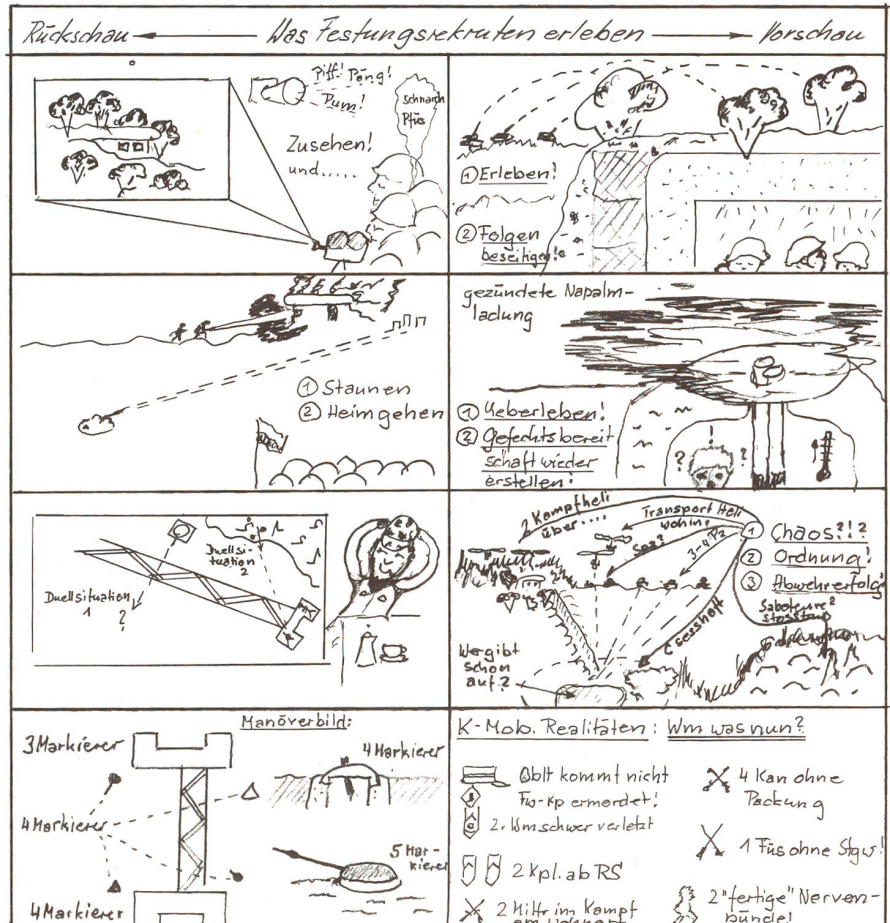 Rückschau Was Festungsrekruten erleben Vorschau
Piff! Päng!
Pum!
Schnarch
Pfüs
Zusehen!
und.....
① Erleben!
② Folgen
beseitigen!
① Staunen
② Heimgehen
gezündete Napalm-
ladung
① Ueberleben!
② Gefechtsbereit
schaft wieder
erstellen!
! ? ?
Duellsi-
tuation
2
Duellsituation
1
?
2 Kampfheli
über....
Transport Heli
wohin?
3-4 Pz
C sesshaft
① Chaos?!?
② Ordnung!
③ Abwehrerfolg
Saboteure?
Wer gibt
schon
auf?
Manöverbild:
3 Markierer
4 Markierer
4 Markierer
5 Mar-
kierer
4 Markierer
K-Mob. Realitäten: Wm was nun?
Oblt kommt nicht
Fw-Kp ermordet!
2. Wm schwer verletzt
2 Kpl. ab RS
2 Mitr im Kampf
4 Kan ohne
Packung
1 Füs ohne Stgw!
2 "fertige" Nerven-
bündel!